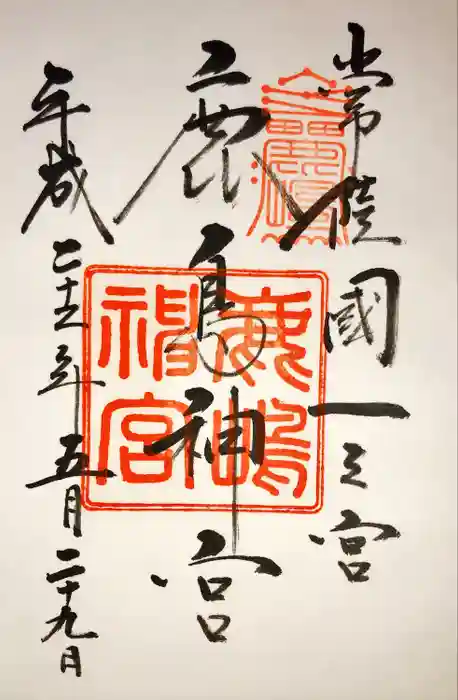 常陸國一之宮
鹿島神宮
平成二十三年五月二十九日
鹿嶋神宮